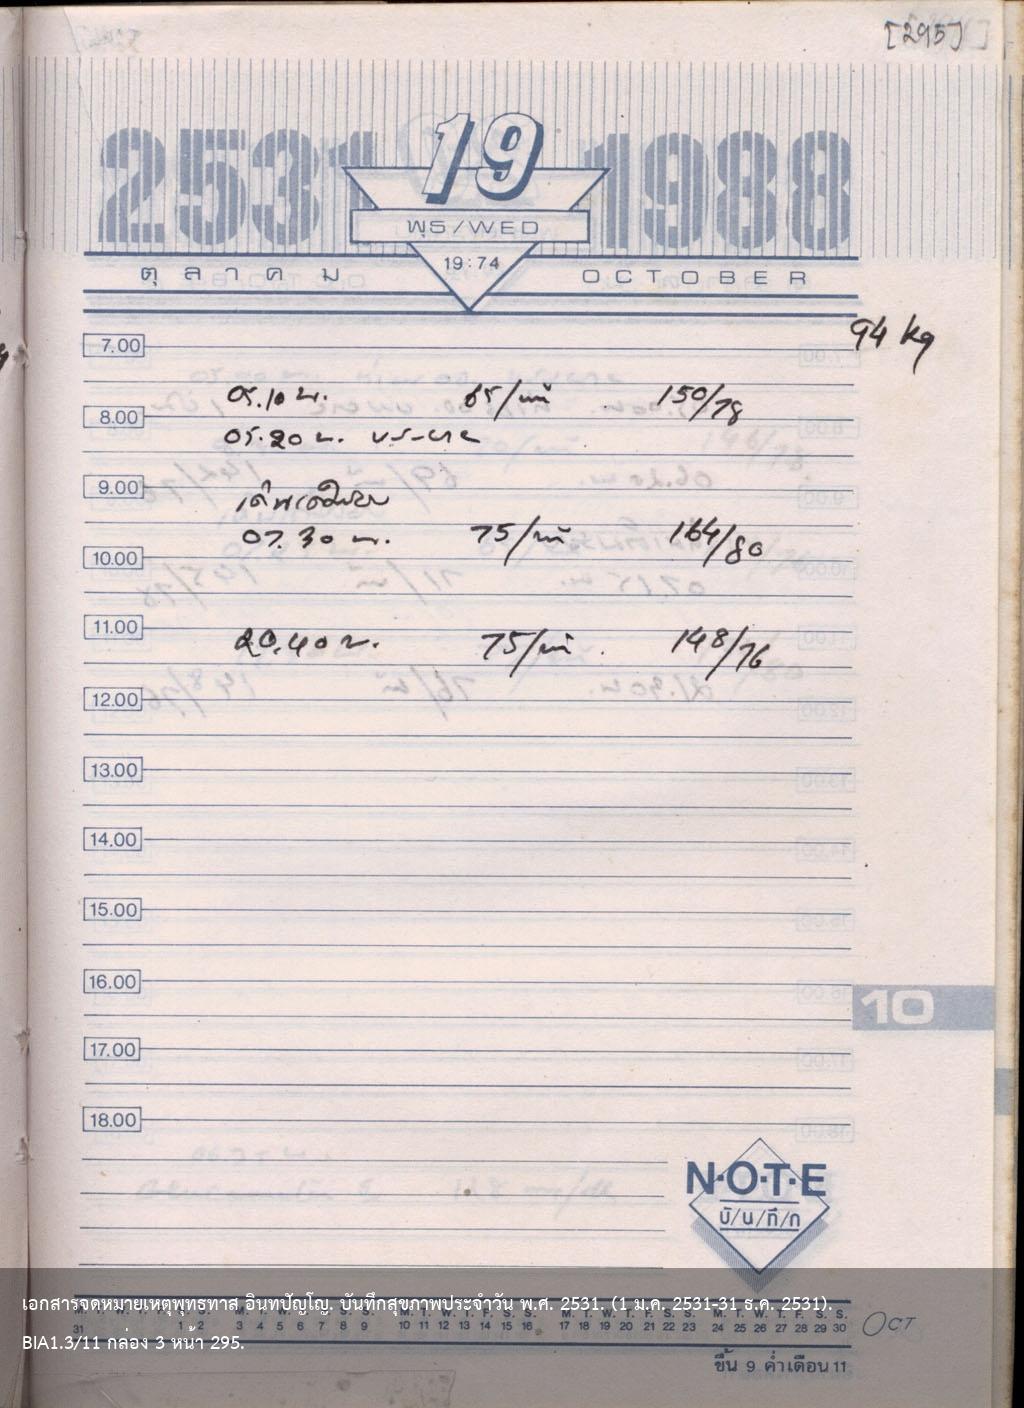 [295]
2531 19 1988
พุธ/WED
19:74
ตุลาคม OCTOBER
94 kg
7.00
05.10 น. 65/นาที 150/78
8.00
05.20 น.
9.00
07.30 น. 75/นาที 164/80
10.00
11.00
20.40 น. 75/นาที 148/76
12.00
13.00
14.00
15.00
16.00
10
17.00
18.00
N·O·T·E
บั/น/ทึ/ก
เอกสารจดหมายเหตุพุทธทาส อินทปัญโญ. บันทึกสุขภาพประจำวัน พ.ศ. 2531. (1 ม.ค. 2531-31 ธ.ค. 2531).
M. T. W. T. F. S. S. M. T. W. T. F. S. S. M. T. W. T. F. S. S. M. T. W. T. F. S. S. M. T. W. T. F. S. S.
31 1 2 3 4 5 6 7 8 9 10 11 12 13 14 15 16 17 18 19 20 21 22 23 24 25 26 27 28 29 30 OCT
BIA1.3/11 กล่อง 3 หน้า 295.
ขึ้น 9 ค่ำเดือน 11